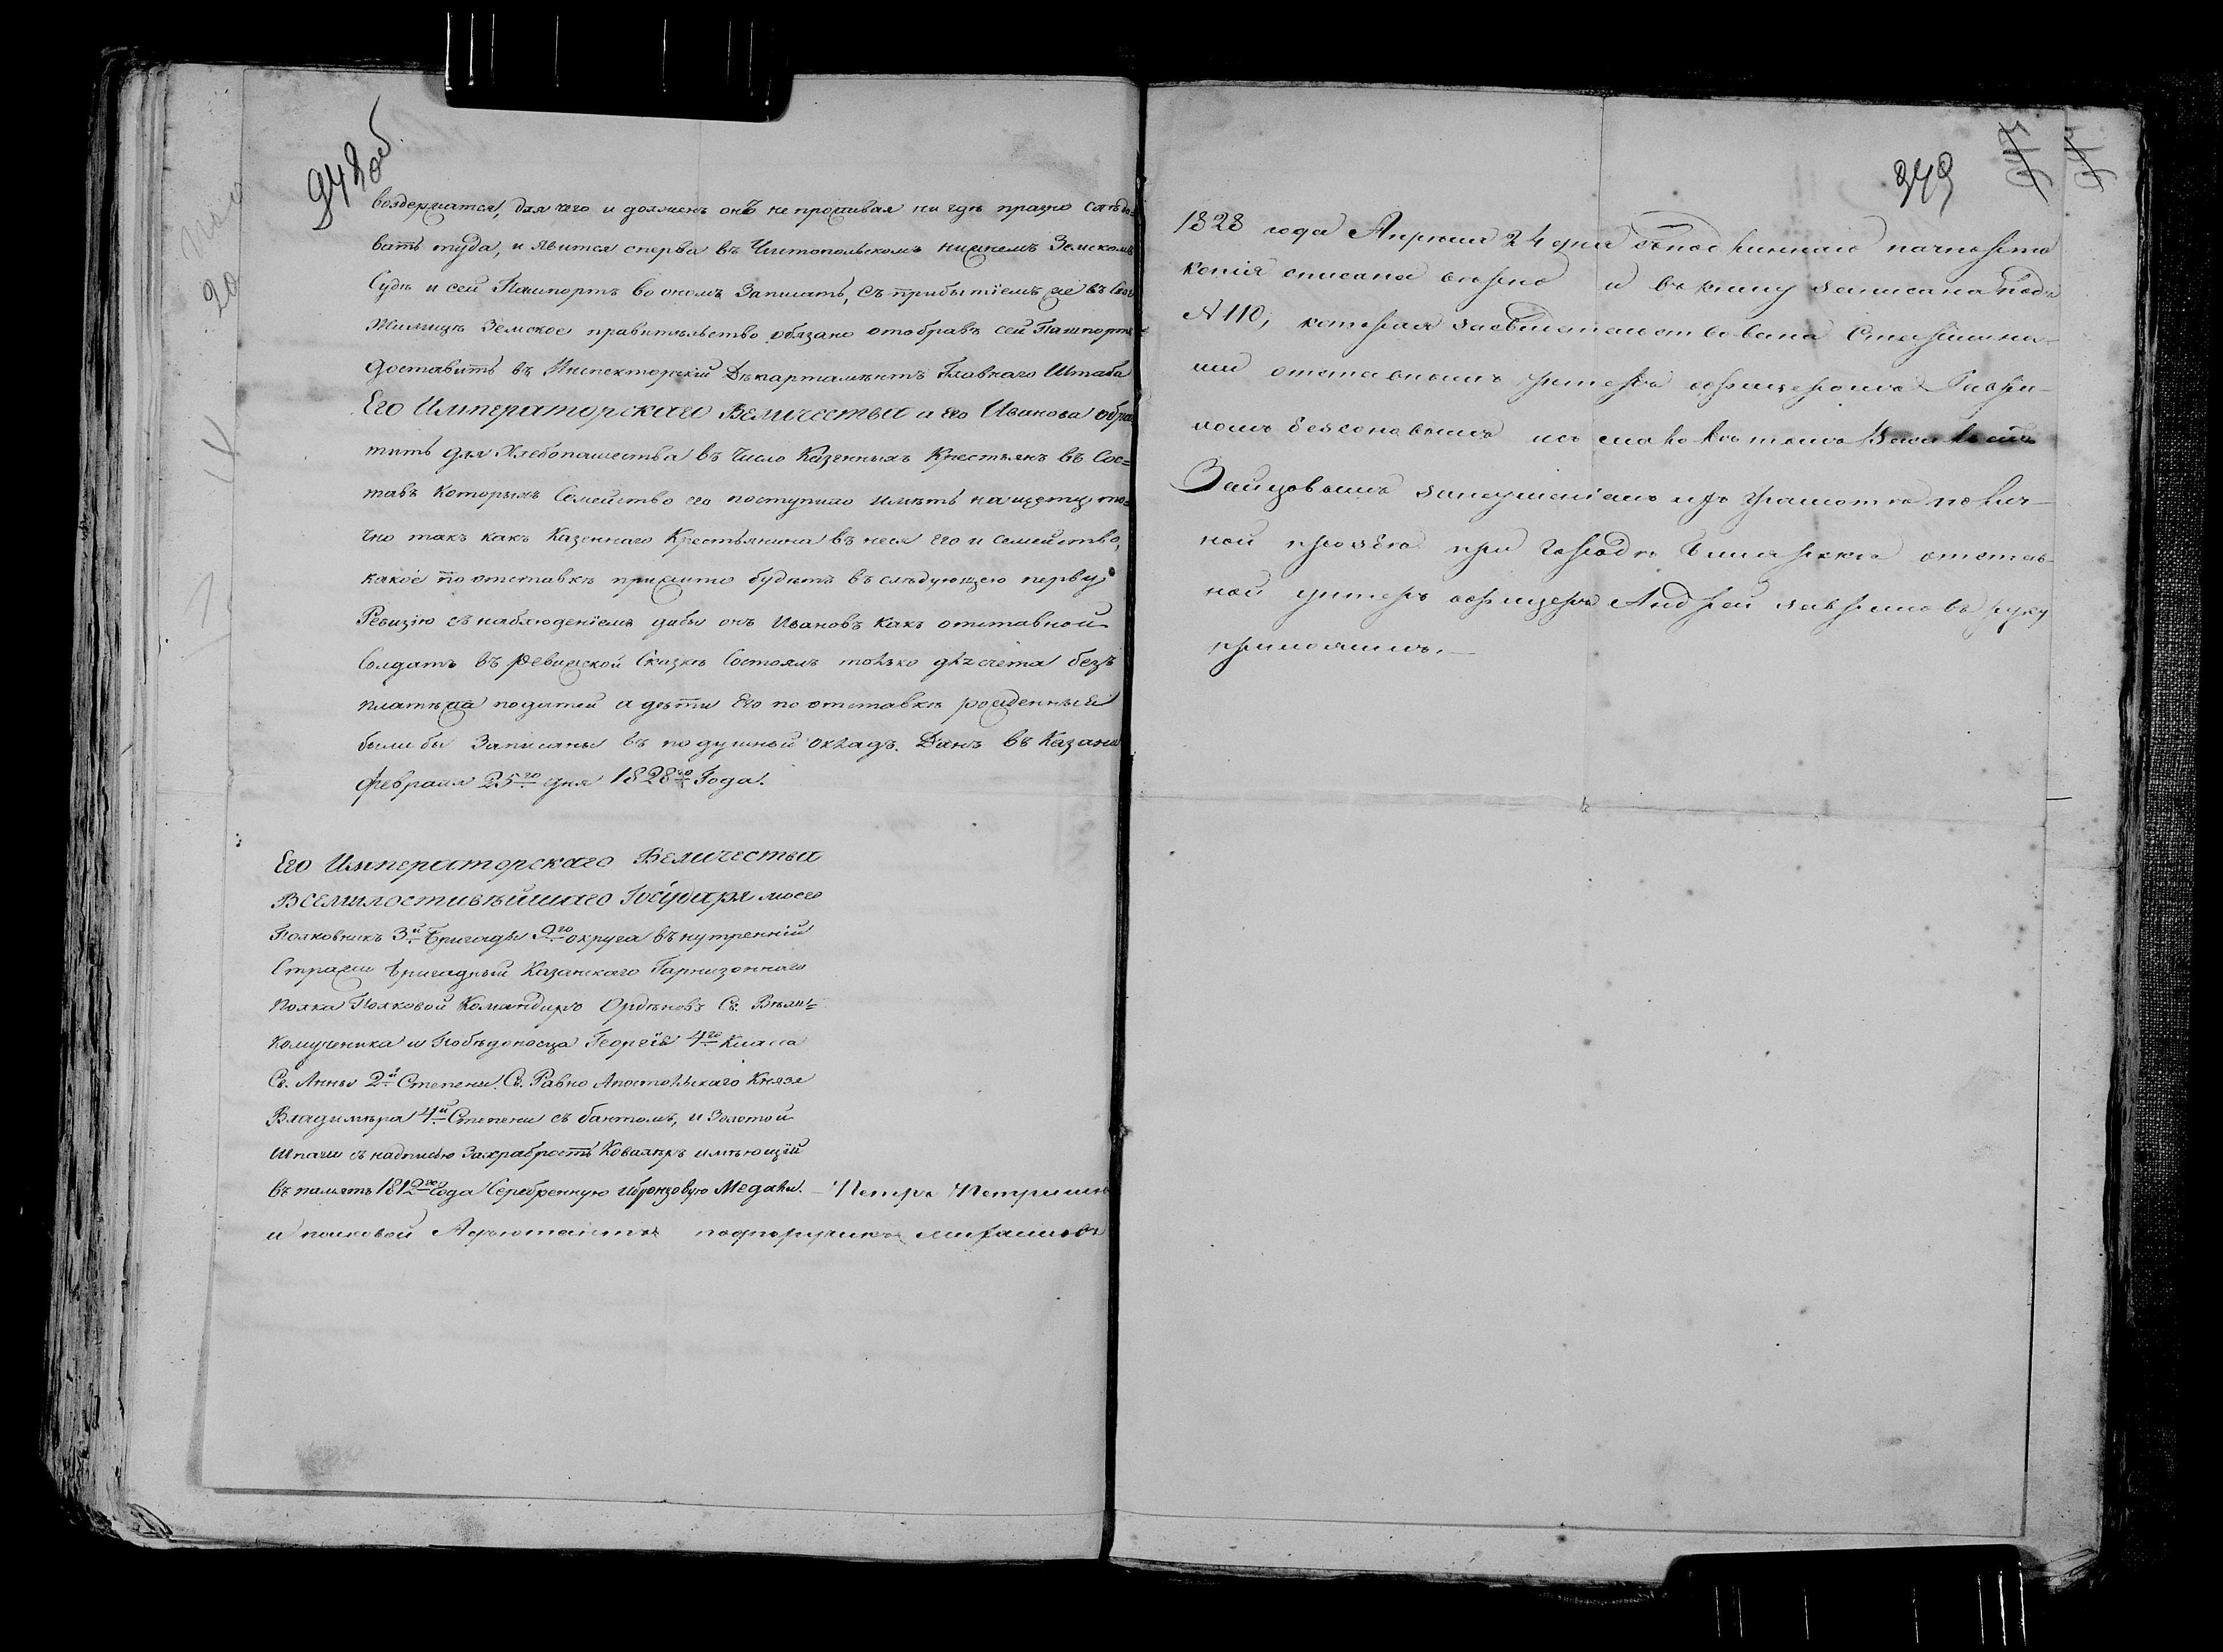 942об
воздержатся, для чего и долженъ онъ не проживая ни гдѣ празно слѣдо-
вать туда, и явится сперва въ Чистопольскомъ нижнемъ Земскомъ
Судѣ и сей Пашпортъ во ономъ Записать, съ прибытiемъ же въ Свое
Жилищѣ Земское правительство обязано отобравъ сей Пашпортъ
доставить въ Инспекторскiй Дѣкартамѣнтъ Главнаго Штаба
Его Императорскаго Величества а его Иванова обра
тить для Хлебопашества въ число Казенныхъ Крестьянъ въ Сос=
тавъ Которыхъ Семейство его поступило имѣть на щету то=
чно такъ какъ Казеннаго Крестьянина внеся его и семейство,
какое по отставкѣ прижито будетъ въ слѣдующею перву
Ревизiю съ наблюденiемъ дабы онъ Ивановъ Какъ отставной
Солдатъ въ Ревижской Сказкѣ Состоялъ только для счета безъ
платѣжа податей а дѣти Его по отставкѣ рожденные
были бы Записаны въ подушный окладъ. Данъ въ Казани
февраля 25го дня 1828го Года.
Его Императорскаго Величества
Всемилостивѣйшаго Государя моего
Полковникъ 3й Бригады 9го округа внутреннiй
Стражи Бригадный Казанскаго Гарнизоннаго
Полка Полковой Командиръ Ордѣновъ Св. Вѣли=
комученика и Побѣдоносца Георгiя 4го Класса
Св. Анны 2й Степени. Св. Равно Апостольскаго Князя
Владимѣра 4й Степени съ бантомъ, и Золотой
Шпаги съ надписью Захрабрость Ковалѣръ имѣющiй
въ память 1812го года Серебренную ибронзовую Медали. – Петръ
и полковой Адъютантъ подпорутчикъ
943
1828 года Апреля 24 дня
копiя списана верно и въ книгу записана подъ
№ 110, которая засвидетельствована
отставнымъ унтеръ офицеромъ
Зайцовымъ
ной прозбѣ при Городѣ отстав-
ной унтеръ офицеръ Андрей руку
приложилъ.